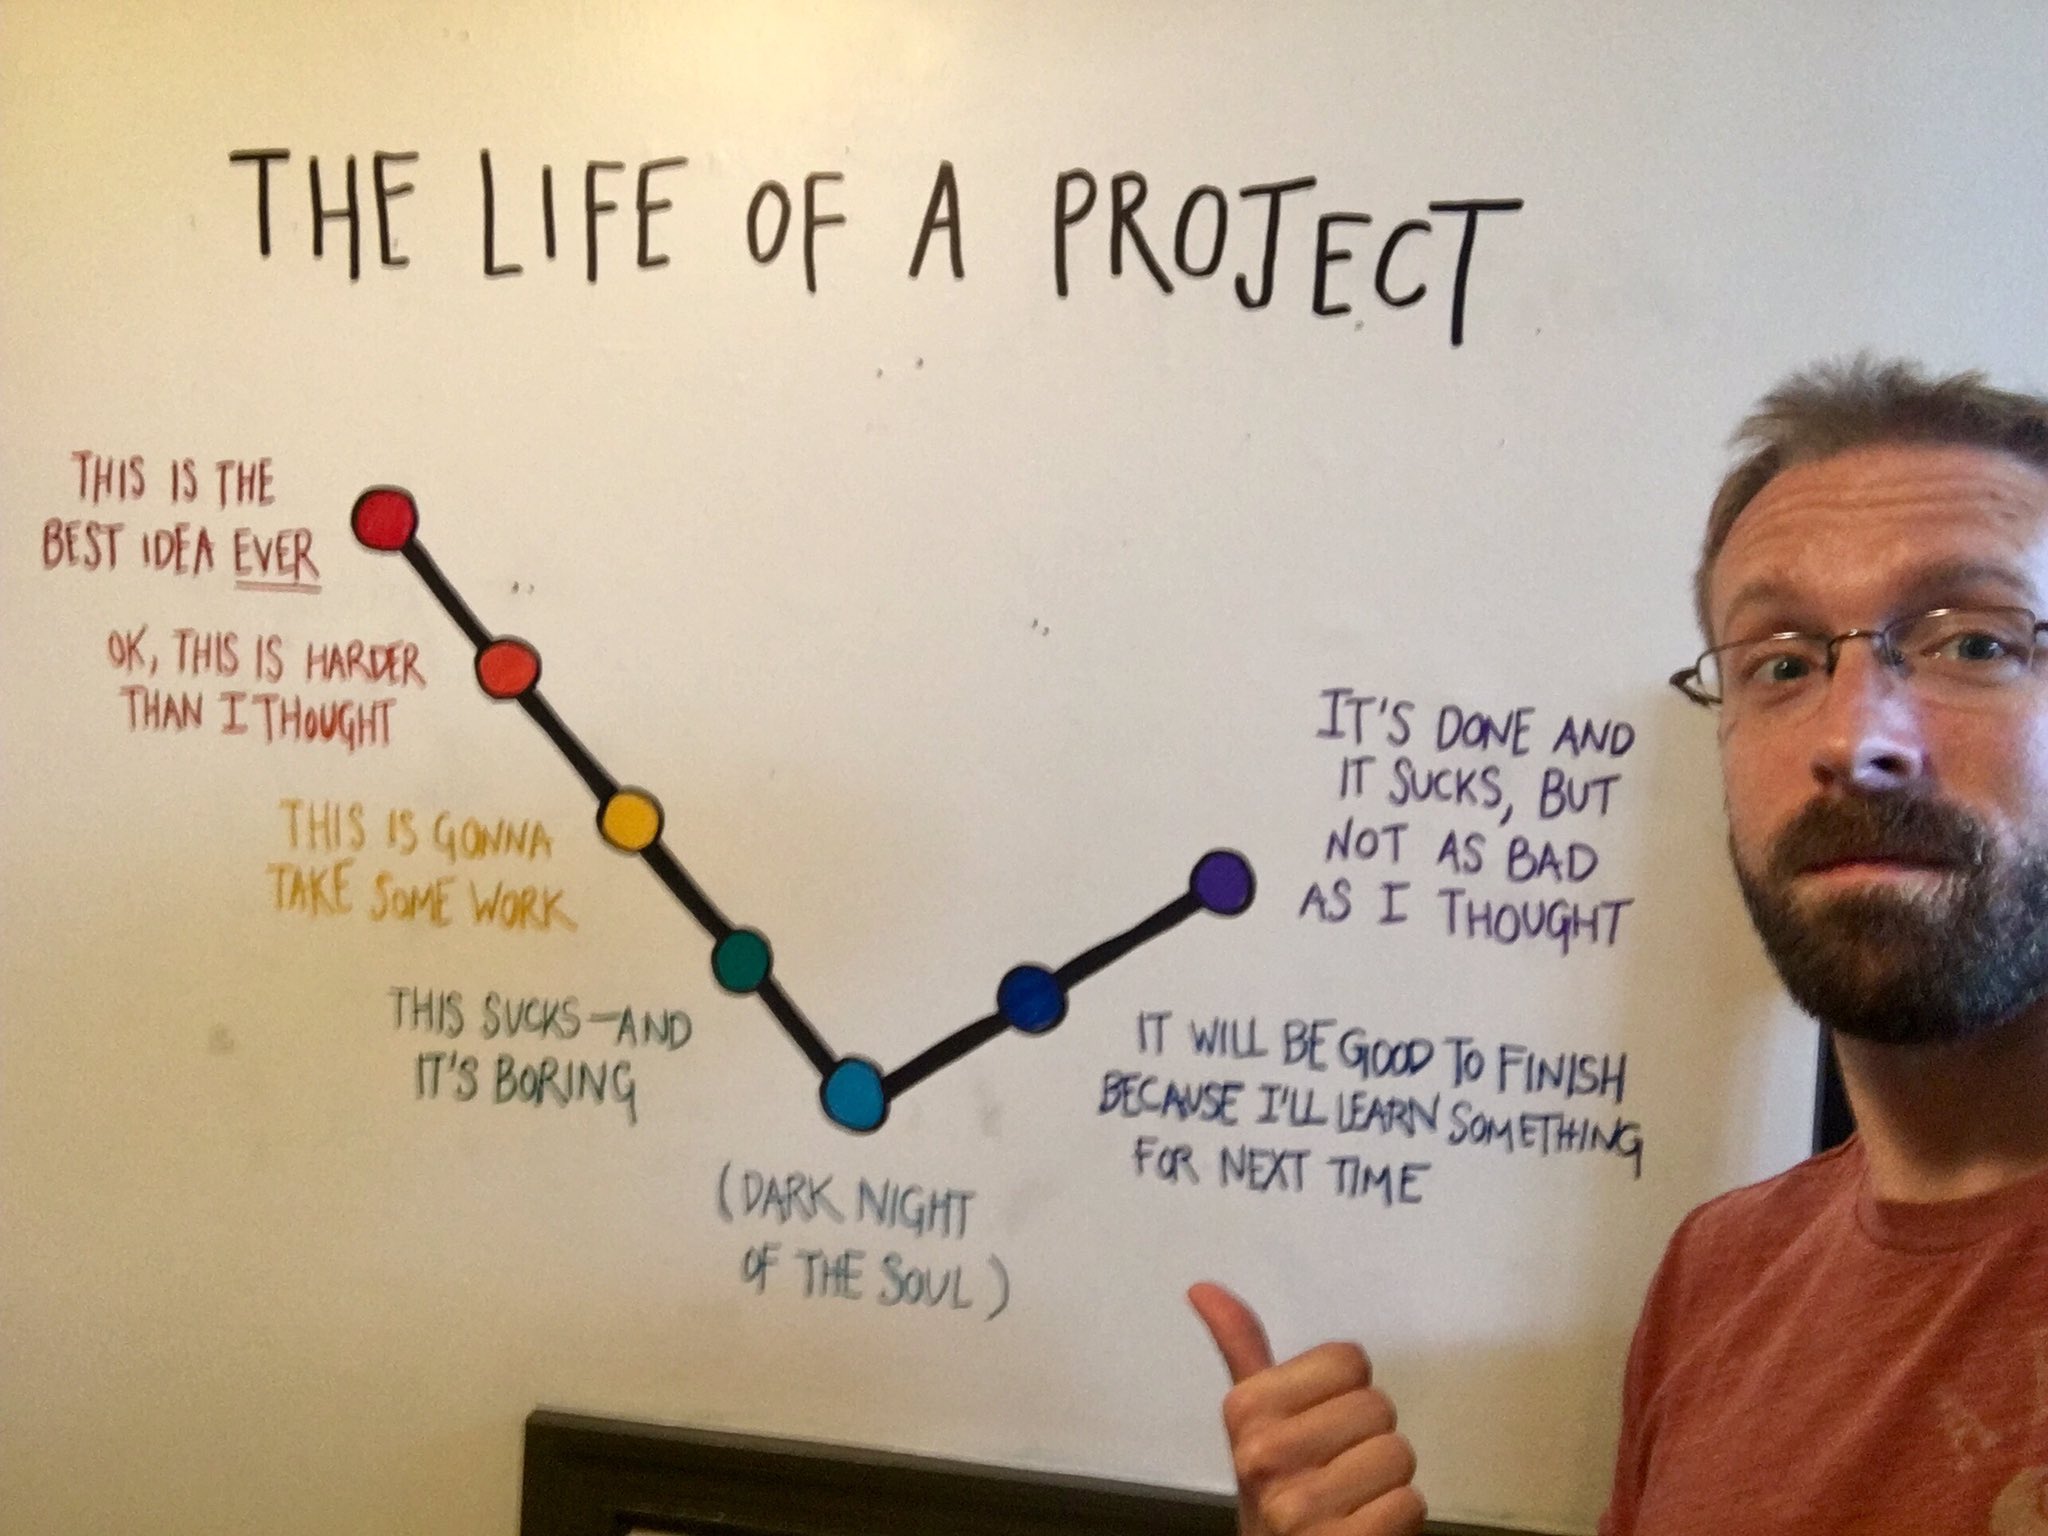 THE LIFE OF A PROJECT
THIS IS THE
BEST IDEA EVER
OK, THIS IS HARDER
THAN I THOUGHT
THIS IS GONNA
TAKE SOME WORK
THIS SUCKS—AND
IT'S BORING
(DARK NIGHT
OF THE SOUL)
IT WILL BE GOOD TO FINISH
BECAUSE I'LL LEARN SOMETHING
FOR NEXT TIME
IT'S DONE AND
IT SUCKS, BUT
NOT AS BAD
AS I THOUGHT